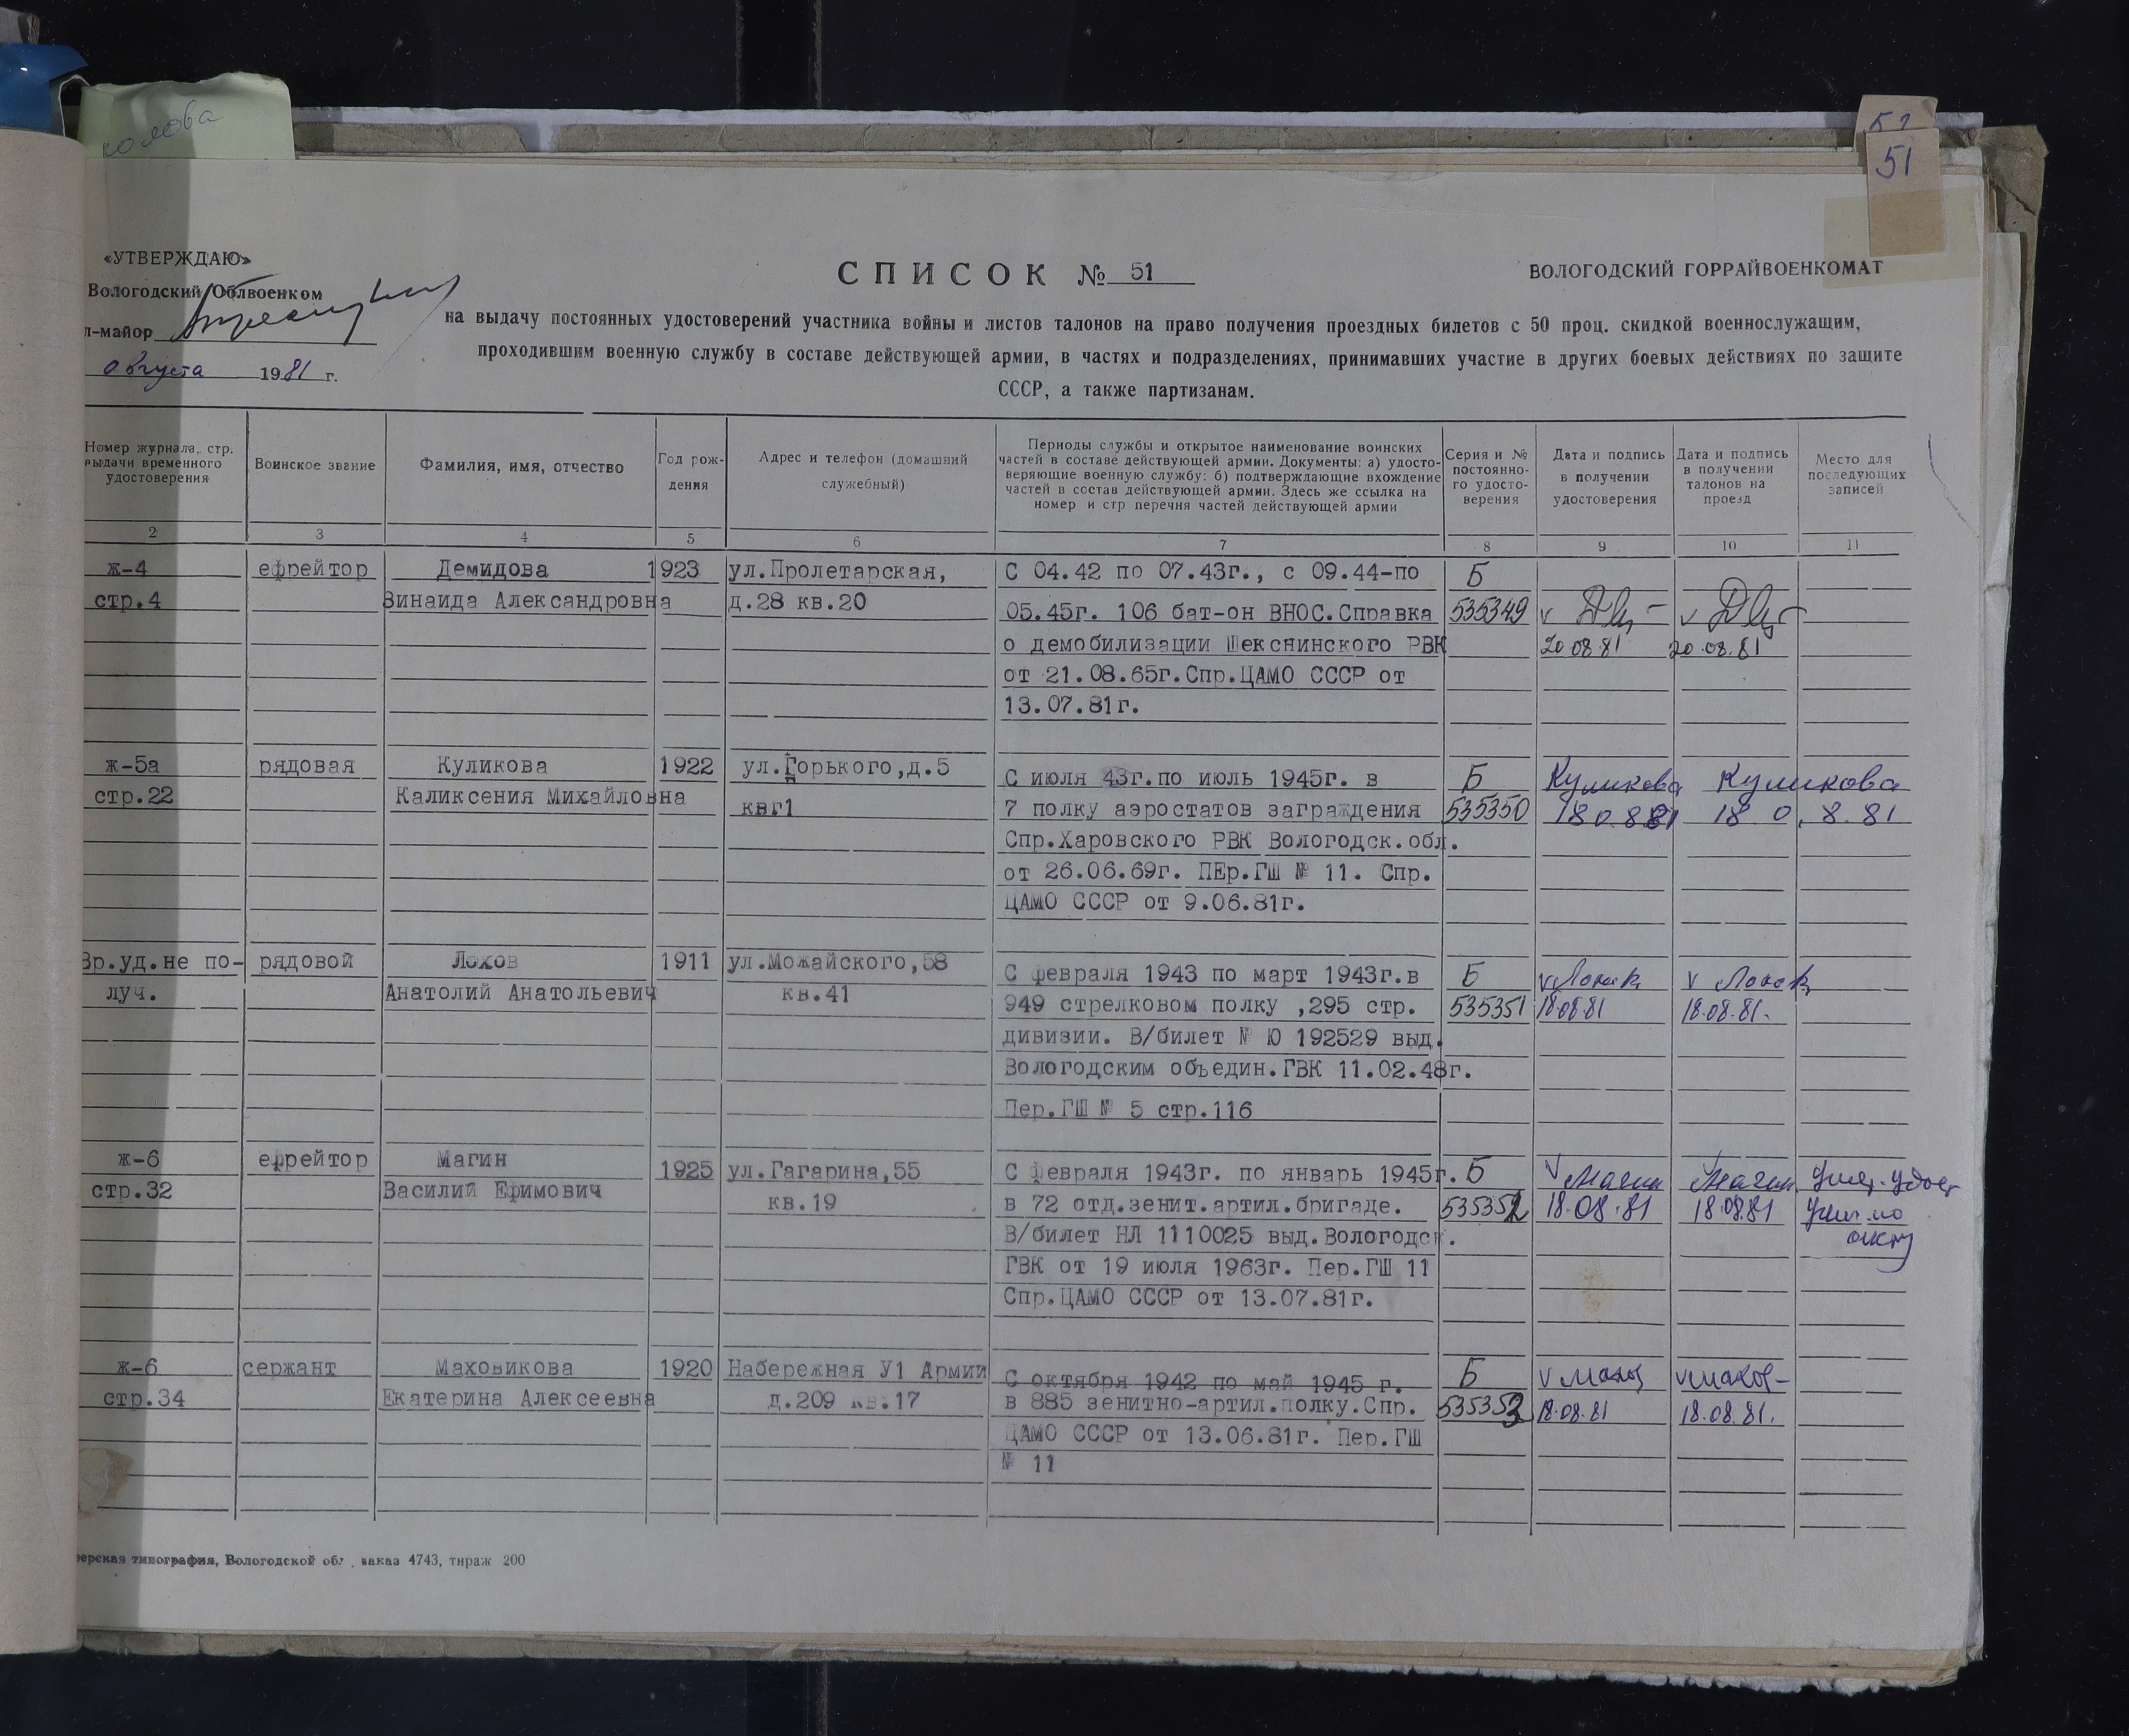 колова
52
51
«УТВЕРЖДАЮ»
Вологодский Облвоенком
л-майор
августа 1981 г.
СПИСОК № 51
ВОЛОГОДСКИЙ ГОРРАЙВОЕНКОМАТ
на выдачу постоянных удостоверений участника войны и листов талонов на право получения проездных билетов с 50 проц. скидкой военнослужащим,
проходившим военную службу в составе действующей армии, в частях и подразделениях, принимавших участие в других боевых действиях по защите
СССР, а также партизанам.
Номер журнала, стр.
выдачи временного
удостоверения
Воинское звание
Фамилия, имя, отчество
Год рож-
дения
Адрес и телефон (домашний
служебный)
Периоды службы и открытое наименование воинских
частей в составе действующей армии. Документы: а) удосто-
веряющие военную службу: б) подтверждающие вхождение
частей в состав действующей армии. Здесь же ссылка на
номер и стр перечня частей действующей армии
Серия и №
постоянно-
го удосто-
верения
Дата и подпись
в получении
удостоверения
Дата и подпись
в получении
талонов на
проезд
Место для
последующих
записей
2 3 4 5 6 7 8 9 10 11
ж-4
стр.4
ефрейтор
Демидова
Зинаида Александровна
1923
ул.Пролетарская,
д.28 кв.20
С 04.42 по 07.43г., с 09.44-по
05.45г. 106 бат-он ВНОС.Справка
о демобилизации Шекснинского РВК
от 21.08.65г.Спр.ЦАМО СССР от
13.07.81г.
Б
535349
20 08.81
20.08.81
ж-5а
стр.22
рядовая
Куликова
Каликсения Михайловна
1922
ул.Горького,д.5
квг1
С июля 43г.по июль 1945г. в
7 полку аэростатов заграждения
Спр.Харовского РВК Вологодск.обл.
от 26.06.69г. ПЕр.ГШ № 11. Спр.
ЦАМО СССР от 9.06.81г.
Б
535350
Куликова
18 0.8 81
Куликова
18 0.8.81
Вр.уд.не по-
луч.
рядовой
Лохов
Анатолий Анатольевич
1911
ул.Можайского,58
кв.41
С февраля 1943 по март 1943г.в
949 стрелковом полку ,295 стр.
дивизии. В/билет № Ю 192529 выд.
Вологодским объедин.ГВК 11.02.48г.
Пер.ГШ № 5 стр.116
Б
535351
18.08.81
18.08.81.
ж-6
стр.32
ефрейтор
Магин
Василий Ефимович
1925
ул.Гагарина,55
кв.19
С февраля 1943г. по январь 1945г.
в 72 отд.зенит.артил.бригаде.
В/билет НЛ 1110025 выд.Вологодск.
ГВК от 19 июля 1963г. Пер.ГШ 11
Спр.ЦАМО СССР от 13.07.81г.
Б
535352
Магин
18.08.81
Магин
18.08.81
по
акту
ж-6
стр.34
сержант
Маховикова
Екатерина Алексеевна
1920
Набережная У1 Армии
д.209 кв.17
С октября 1942 по май 1945 г.
в 885 зенитно-артил.полку.Спр.
ЦАМО СССР от 13.06.81г. Пер.ГШ
№ 11
Б
535353
v Махов
18.08.81
v Махов-
18.08.81.
ерская типография, Вологодской обл., заказ 4743, тираж 200